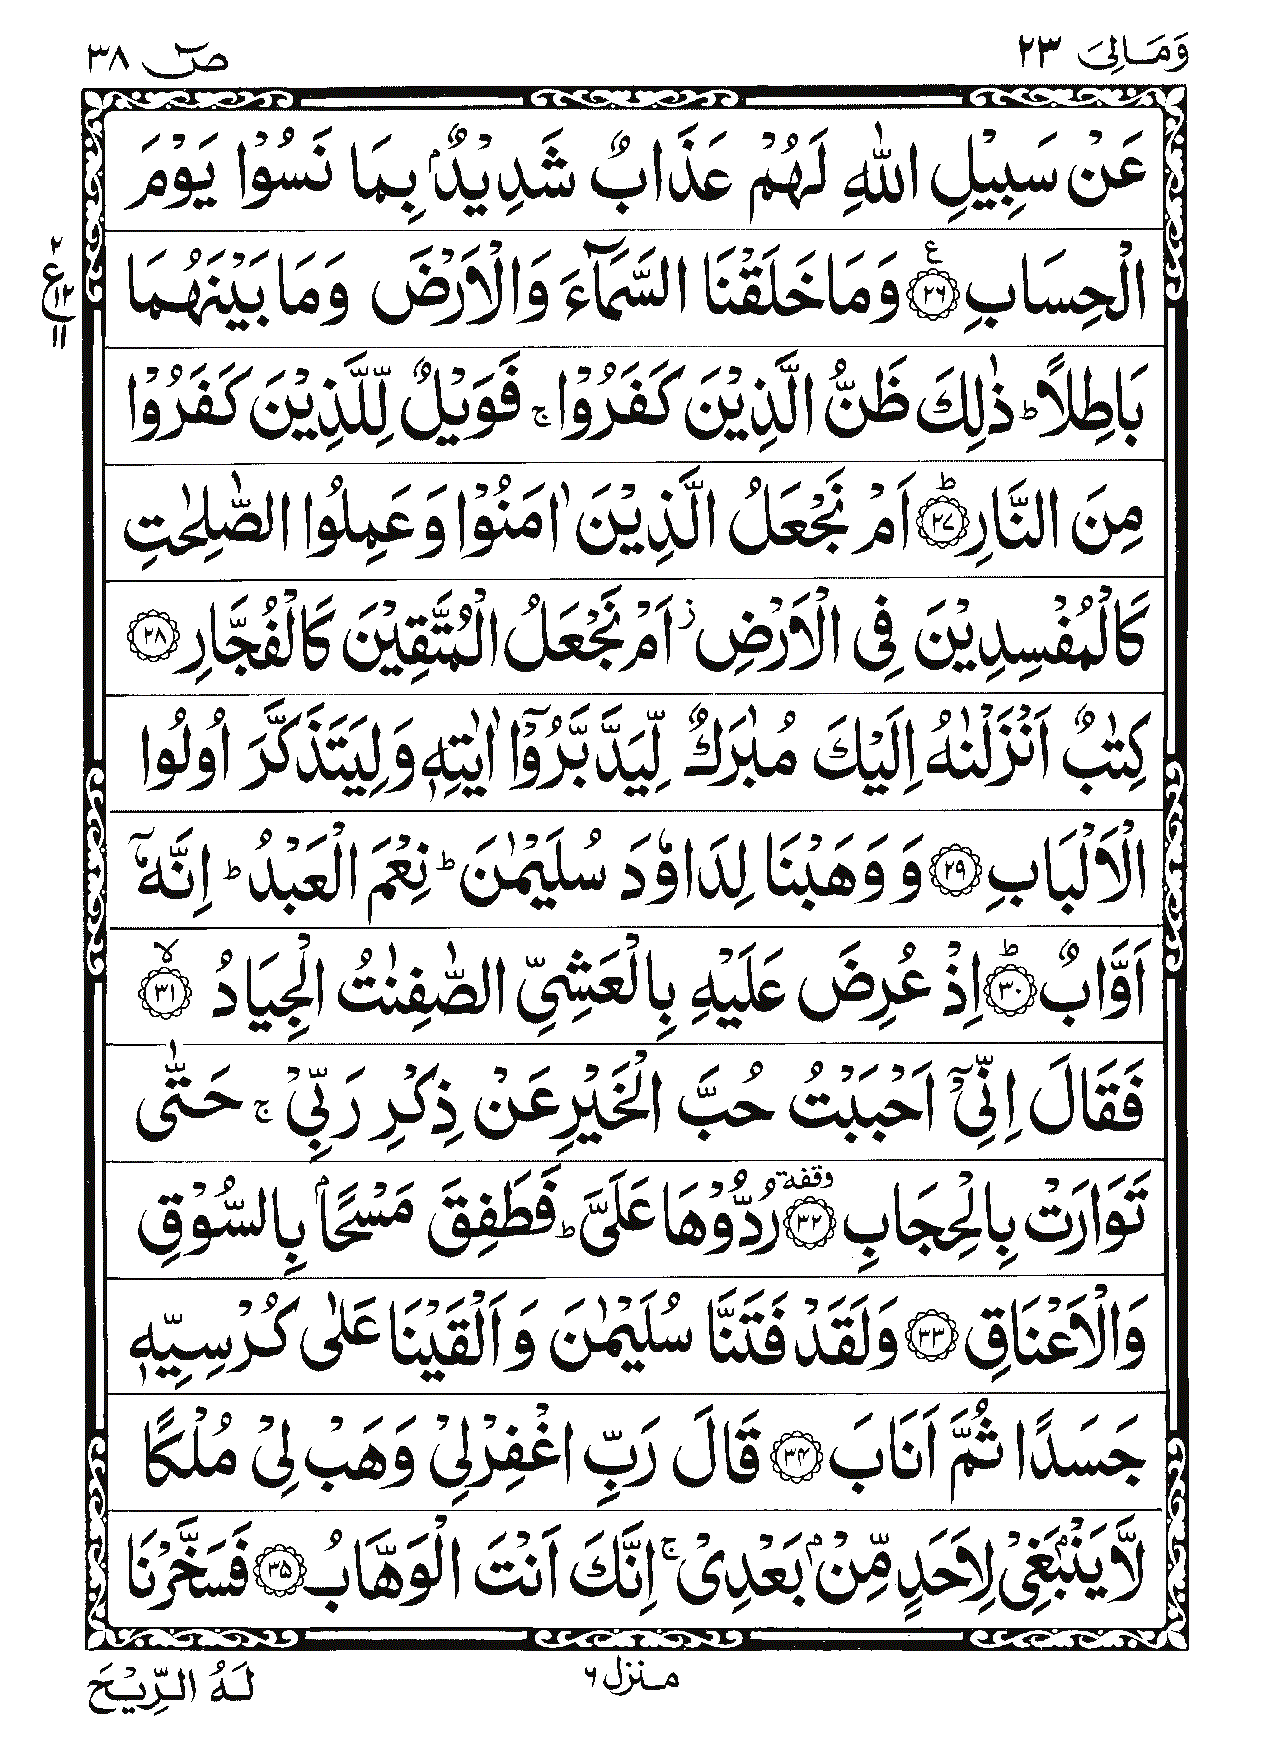 وَمَالِیَ ٢٣
صٓ ٣٨
عَنْ سَبِيْلِ اللّٰهِ لَهُمْ عَذَابٌ شَدِيْدٌۢ بِمَا نَسُوْا يَوْمَ
الْحِسَابِ ﴿٢٦﴾ ع وَمَا خَلَقْنَا السَّمَآءَ وَالْاَرْضَ وَمَا بَيْنَهُمَا
٢ ع ١٢ ١١
بَاطِلًا ؕ ذٰلِكَ ظَنُّ الَّذِيْنَ كَفَرُوْا ۚ فَوَيْلٌ لِّلَّذِيْنَ كَفَرُوْا
مِنَ النَّارِ ﴿٢٧﴾ؕ اَمْ نَجْعَلُ الَّذِيْنَ اٰمَنُوْا وَعَمِلُوا الصّٰلِحٰتِ
كَالْمُفْسِدِيْنَ فِى الْاَرْضِ ؗ اَمْ نَجْعَلُ الْمُتَّقِيْنَ كَالْفُجَّارِ ﴿٢٨﴾
كِتٰبٌ اَنْزَلْنٰهُ اِلَيْكَ مُبٰرَكٌ لِّيَدَّبَّرُوْۤا اٰيٰتِهٖ وَلِيَتَذَكَّرَ اُولُوا
الْاَلْبَابِ ﴿٢٩﴾ وَوَهَبْنَا لِدَاوٗدَ سُلَيْمٰنَ ؕ نِعْمَ الْعَبْدُ ؕ اِنَّهٗۤ
اَوَّابٌ ﴿٣٠﴾ؕ اِذْ عُرِضَ عَلَيْهِ بِالْعَشِىِّ الصّٰفِنٰتُ الْجِيَادُ ﴿٣١﴾ۙ
فَقَالَ اِنِّىْۤ اَحْبَبْتُ حُبَّ الْخَيْرِ عَنْ ذِكْرِ رَبِّىْ ۚ حَتّٰى
تَوَارَتْ بِالْحِجَابِ ﴿٣٢﴾ وقفة رُدُّوْهَا عَلَىَّ ؕ فَطَفِقَ مَسْحًۢا بِالسُّوْقِ
وَالْاَعْنَاقِ ﴿٣٣﴾ وَلَقَدْ فَتَنَّا سُلَيْمٰنَ وَاَلْقَيْنَا عَلٰى كُرْسِيِّهٖ
جَسَدًا ثُمَّ اَنَابَ ﴿٣٤﴾ قَالَ رَبِّ اغْفِرْ لِىْ وَهَبْ لِىْ مُلْكًا
لَّا يَنْۢبَغِىْ لِاَحَدٍ مِّنْۢ بَعْدِىْ ۚ اِنَّكَ اَنْتَ الْوَهَّابُ ﴿٣٥﴾ فَسَخَّرْنَا
مـنزل ٦
لَهُ الرِّيْحَ